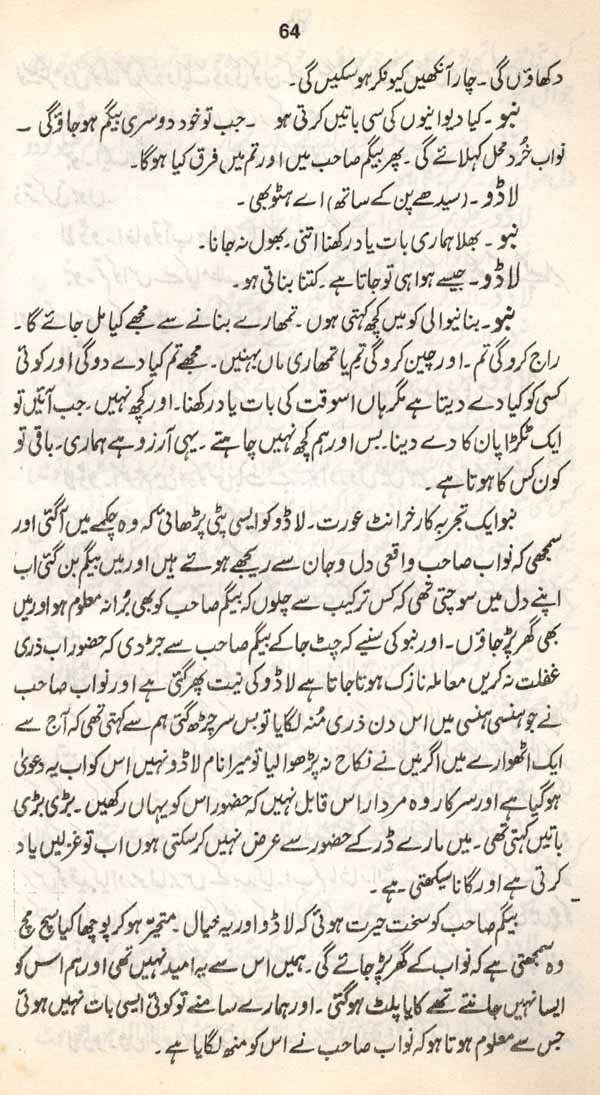 64
دکھاؤں گی ۔ چار آنکھیں کیونکر ہو سکیں گی ۔
نبو ۔ کیا دیوانیوں کی سی باتیں کرتی ہو ۔ جب تو خود دوسری بیگم ہو جاؤ گی ۔
نواب خُرد محل کہلائے گی ۔ پھر بیگم صاحب میں اور تم میں فرق کیا ہو گا ۔
لاڈو ۔ (سیدھے پن کے ساتھ) اے ہٹو بھی ۔
نبو ۔ بھلا ہماری بات یاد رکھنا اتنی ۔ بھول نہ جانا ۔
لاڈو ۔ جیسے ہوا ہی تو جاتا ہے ۔ کتنا بناتی ہو ۔
نبو ۔ بنانیوالی کو میں کچھ کہتی ہوں ۔ تمھارے بنانے سے مجھے کیا مل جائے گا ۔
راج کرو گی تم ۔ اور چین کرو گی تم یا تمھاری ماں بہنیں ۔ مجھے تم کیا دے دو گی اور کوئی
کسی کو کیا دے دیتا ہے مگر ہاں اسوقت کی بات یاد رکھنا ۔ اور کچھ نہیں ۔ جب آئیں تو
ایک ٹکڑا پان کا دے دینا ۔ بس اور ہم کچھ نہیں چاہتے ۔ یہی آرزو ہے ہماری ۔ باقی تو
کون کس کا ہوتا ہے ۔
نبو ایک تجربہ کار خرانٹ عورت ۔ لاڈو کو ایسی پٹی پڑھائی کہ وہ چکمے میں آ گئی اور
سمجھی کہ نواب صاحب واقعی دل و جان سے ریجھے ہوئے ہیں اور میں بیگم بن گئی اب
اپنے دل میں سوچتی تھی کہ کس ترکیب سے چلوں کہ بیگم صاحب کو بھی بُرا نہ معلوم ہو اور میں
بھی گھر پڑ جاؤں ۔ اور نبو کی سنیے کہ چٹ جا کے بیگم صاحب سے جڑ دی کہ حضور اب ذری
غفلت نہ کریں معاملہ نازک ہوتا جاتا ہے لاڈو کی نیت پھر گئی ہے اور نواب صاحب
نے جو ہنسی ہنسی میں اس دن ذری مُنہ لگایا تو بس سر چڑھ گئی ہم سے کہتی تھی کہ آج سے
ایک اٹھوارے میں اگر میں نے نکاح نہ پڑھوا لیا تو میرا نام لاڈو نہیں اس کو اب یہ دعویٰ
ہو گیا ہے اور سرکار وہ مردار اس قابل نہیں کہ حضور اس کو یہاں رکھیں ۔ بڑی بڑی
باتیں کہتی تھی ۔ میں مارے ڈر کے حضور سے عرض نہیں کر سکتی ہوں اب تو غزلیں یاد
کرتی ہے اور گانا سیکھتی ہے ۔
بیگم صاحب کو سخت حیرت ہوئی کہ لاڈو اور یہ خیال ۔ متحیر ہو کر پوچھا کیا سچ مچ
وہ سمجھتی ہے کہ نواب کے گھر پڑ جائے گی ۔ ہمیں اس سے یہ امید نہیں تھی اور ہم اس کو
ایسا نہیں جانتے تھے کایا پلٹ ہو گئی ۔ اور ہمارے سامنے تو کوئی ایسی بات نہیں ہوئی
جس سے معلوم ہوتا ہو کہ نواب صاحب نے اس کو منھ لگایا ہے ۔